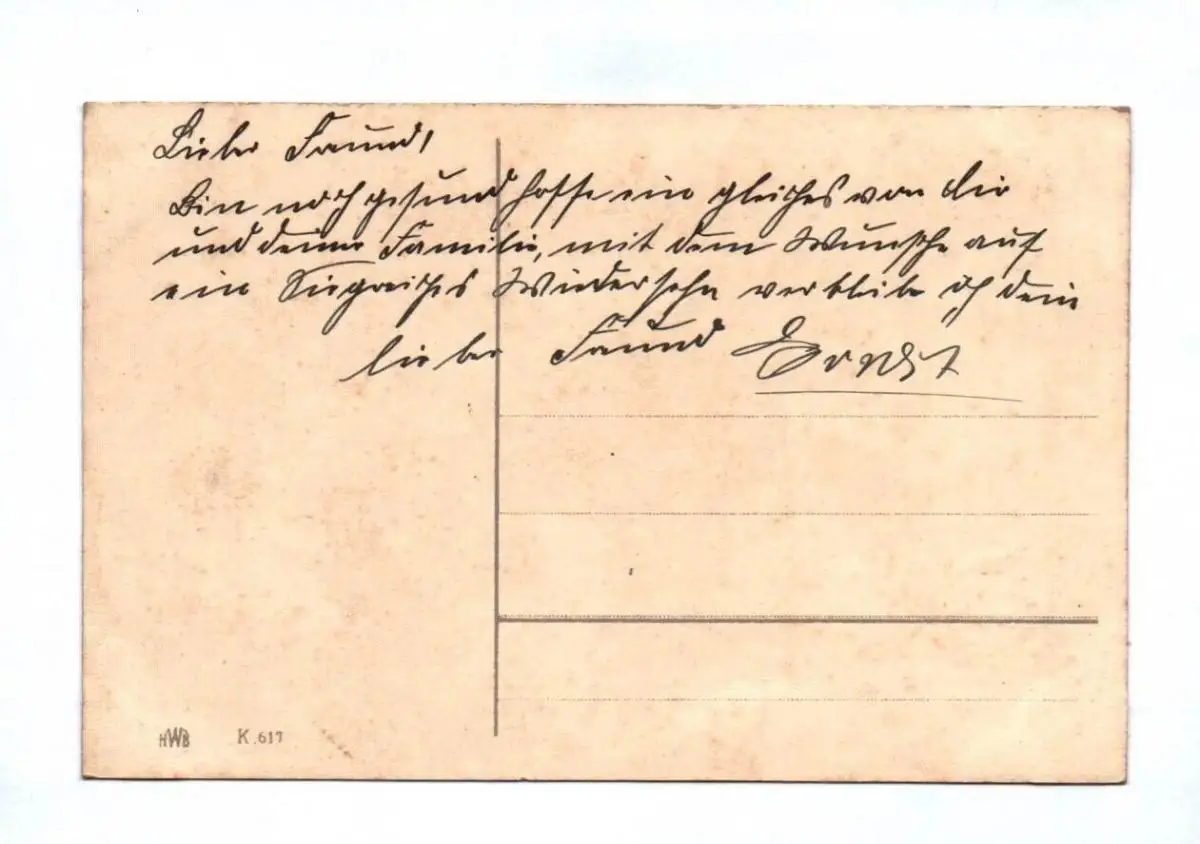 Lieber Freund!
Bin noch gesund hoffe ein gleiches von dir
und deiner Familie, mit dem Wunsche auf
ein Siegreiches Wiedersehn verbleibe ich dein
lieber Freund Ernst
HWB K.617